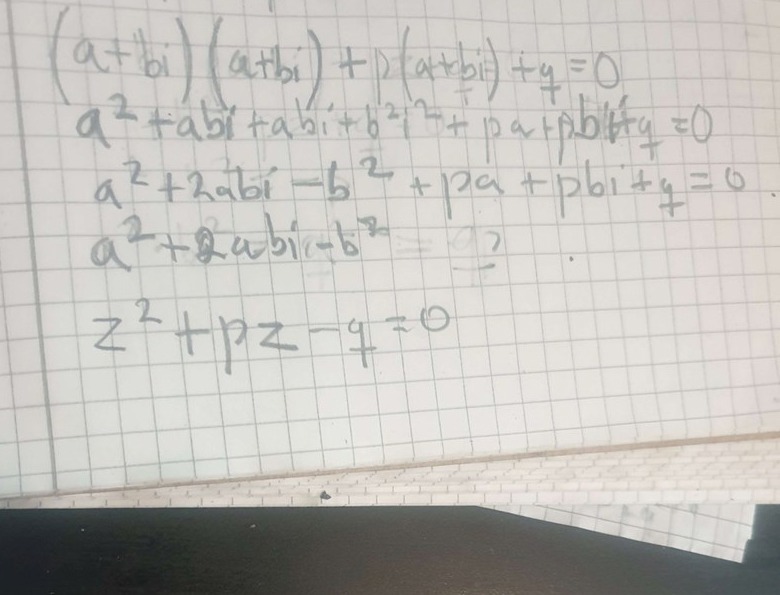 (a+bi)(a+bi)+p(a+bi)+q=0
a²+abi+abi+b²i²+pa+pbi+q=0
a²+2abi-b²+pa+pbi+q=0
a²+2abi-b²
z²+pz-q=0